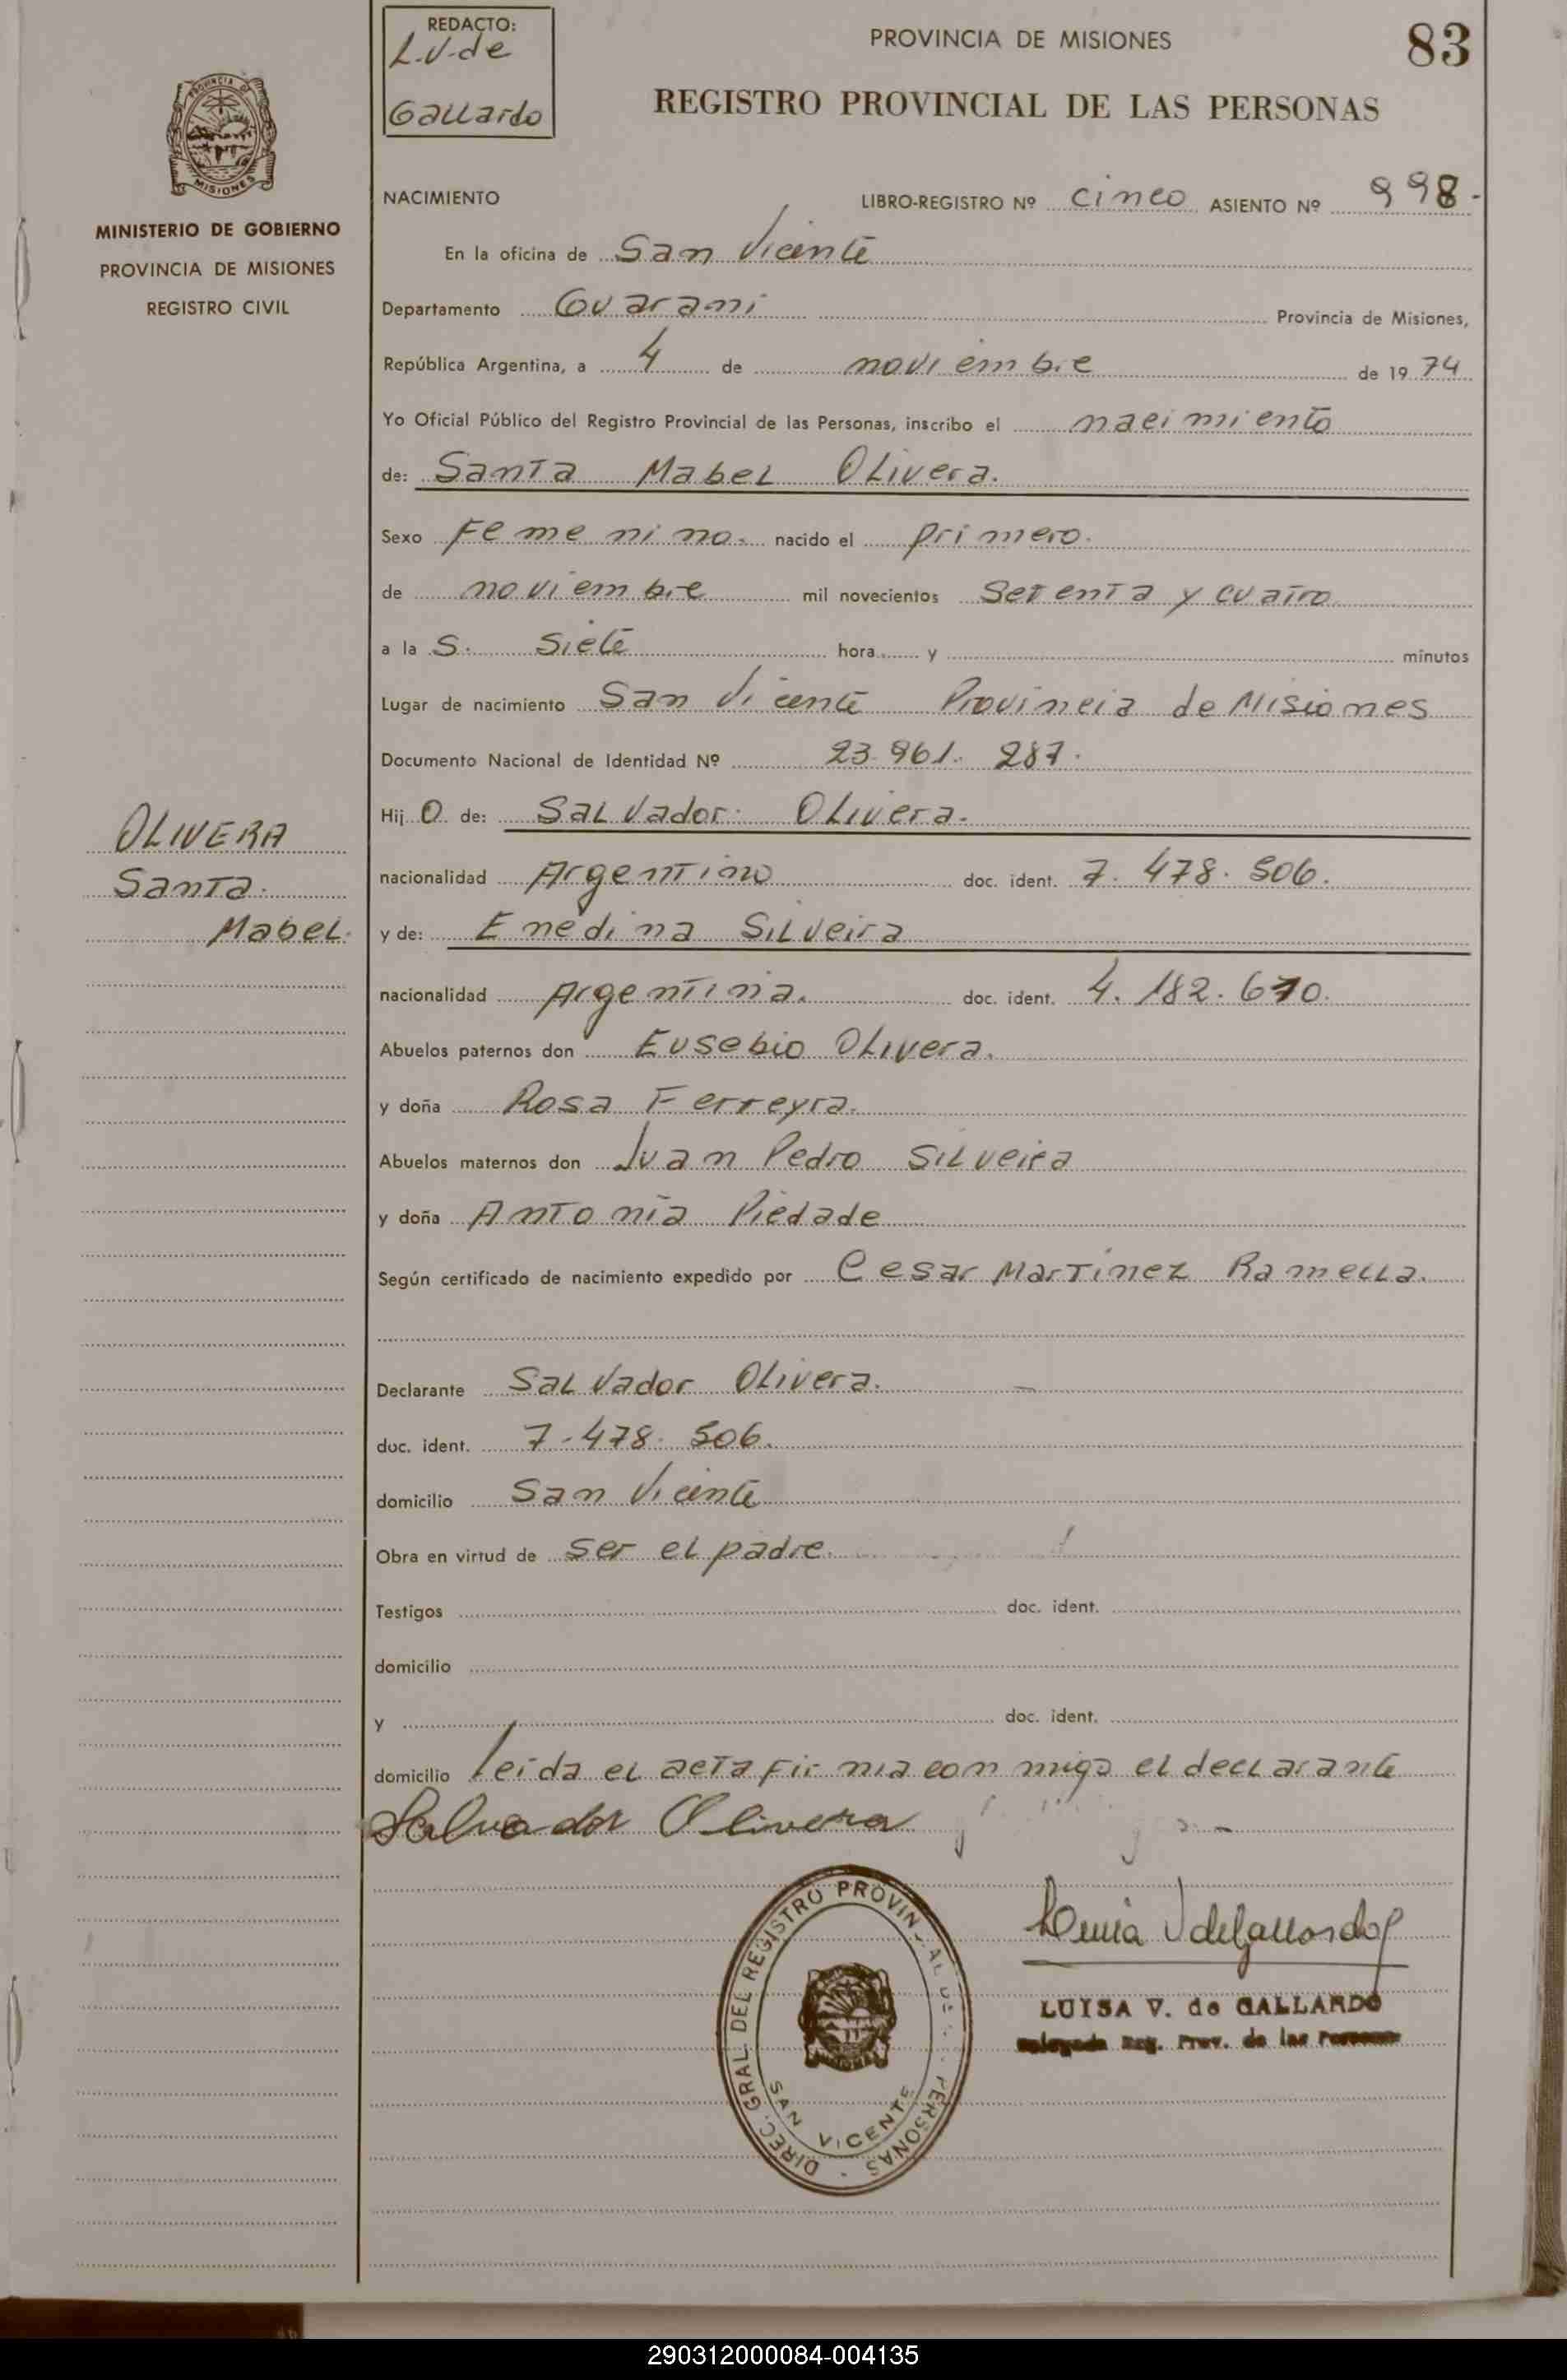 REDACTO:
L.V. de
Gallardo
PROVINCIA DE MISIONES
83
REGISTRO PROVINCIAL DE LAS PERSONAS
PROVINCIA DE
MISIONES
MINISTERIO DE GOBIERNO
PROVINCIA DE MISIONES
REGISTRO CIVIL
NACIMIENTO LIBRO-REGISTRO Nº cinco ASIENTO Nº 998.-
En la oficina de San Vicente
Departamento Guarani Provincia de Misiones,
República Argentina, a 4 de noviembre de 1974
Yo Oficial Público del Registro Provincial de las Personas, inscribo el nacimiento
de: Santa Mabel Olivera.
Sexo Femenino. nacido el primero.
de noviembre mil novecientos setenta y cuatro
a la s. siete hora y minutos
Lugar de nacimiento San Vicente Provincia de Misiones
Documento Nacional de Identidad Nº 23.961.287.
Hij o de: Salvador Olivera.
OLIVERA
Santa
Mabel.
nacionalidad Argentino doc. ident. 7.478.506.
y de: Enedina Silveira
nacionalidad Argentina. doc. ident. 4.182.610.
Abuelos paternos don Eusebio Olivera.
y doña Rosa Ferreyra.
Abuelos maternos don Juan Pedro Silveira
y doña Antonia Piedade
Según certificado de nacimiento expedido por Cesar Martinez Ramella.
Declarante Salvador Olivera.
doc. ident. 7.478.506.
domicilio San Vicente
Obra en virtud de ser el padre.
Testigos doc. ident.
domicilio
y doc. ident.
domicilio leida el acta firma conmigo el declarante
Salvador Olivera
DIREC. GRAL. DEL REGISTRO PROVINCIAL DE PERSONAS
SAN VICENTE
Luisa V de Gallardo
LUISA V. de GALLARDO
Delegada Reg. Prov. de las Personas
290312000084-004135